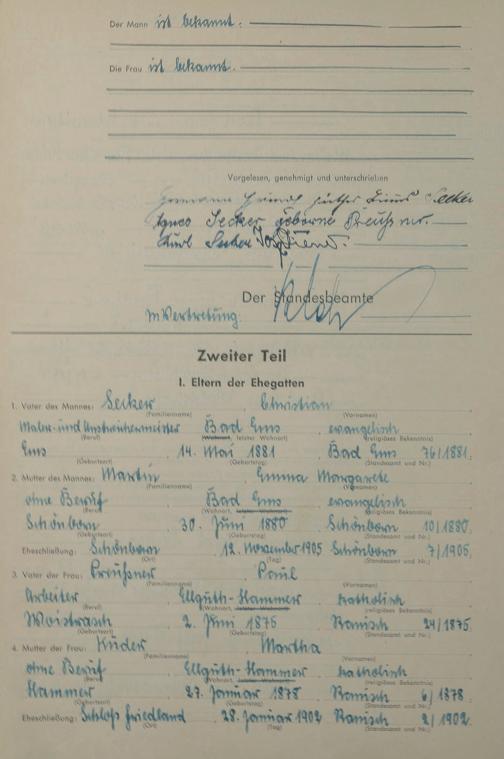 Der Mann ist bekannt.
Die Frau ist bekannt.
Vorgelesen, genehmigt und unterschrieben
Hermann Secker
Agnes Secker geborene
Karl Secker
Der Standesbeamte
In Vertretung:
Zweiter Teil
I. Eltern der Ehegatten
1. Vater des Mannes: Secker Christian
(Familienname) (Vornamen)
Maler- und Anstreichermeister Bad Ems evangelisch
(Beruf) (Wohnort, letzter Wohnort) (religiöses Bekenntnis)
Ems 14. Mai 1881 Bad Ems 76/1881.
(Geburtsort) (Geburtstag) (Standesamt und Nr.)
2. Mutter des Mannes: Martin Emma Margarete
(Familienname) (Vornamen)
ohne Beruf Bad Ems evangelisch
(Beruf) (Wohnort, letzter Wohnort) (religiöses Bekenntnis)
Schönborn 30. Juni 1880 Schönborn 10/1880.
(Geburtsort) (Geburtstag) (Standesamt und Nr.)
Eheschließung: Schönborn 12. November 1905 Schönborn 7/1905.
(Ort) (Tag) (Standesamt und Nr.)
3. Vater der Frau: Preußner Paul
(Familienname) (Vornamen)
Arbeiter Ellguth-Hammer katholisch
(Beruf) (Wohnort, letzter Wohnort) (religiöses Bekenntnis)
2. Juni 1875 24/1875.
(Geburtsort) (Geburtstag) (Standesamt und Nr.)
4. Mutter der Frau: Martha
(Familienname) (Vornamen)
ohne Beruf Ellguth-Hammer katholisch
(Beruf) (Wohnort, letzter Wohnort) (religiöses Bekenntnis)
Hammer 27. Januar 1878 6/1878.
(Geburtsort) (Geburtstag) (Standesamt und Nr.)
Eheschließung: Schloß Friedland 28. Januar 1902 2/1902.
(Ort) (Tag) (Standesamt und Nr.)